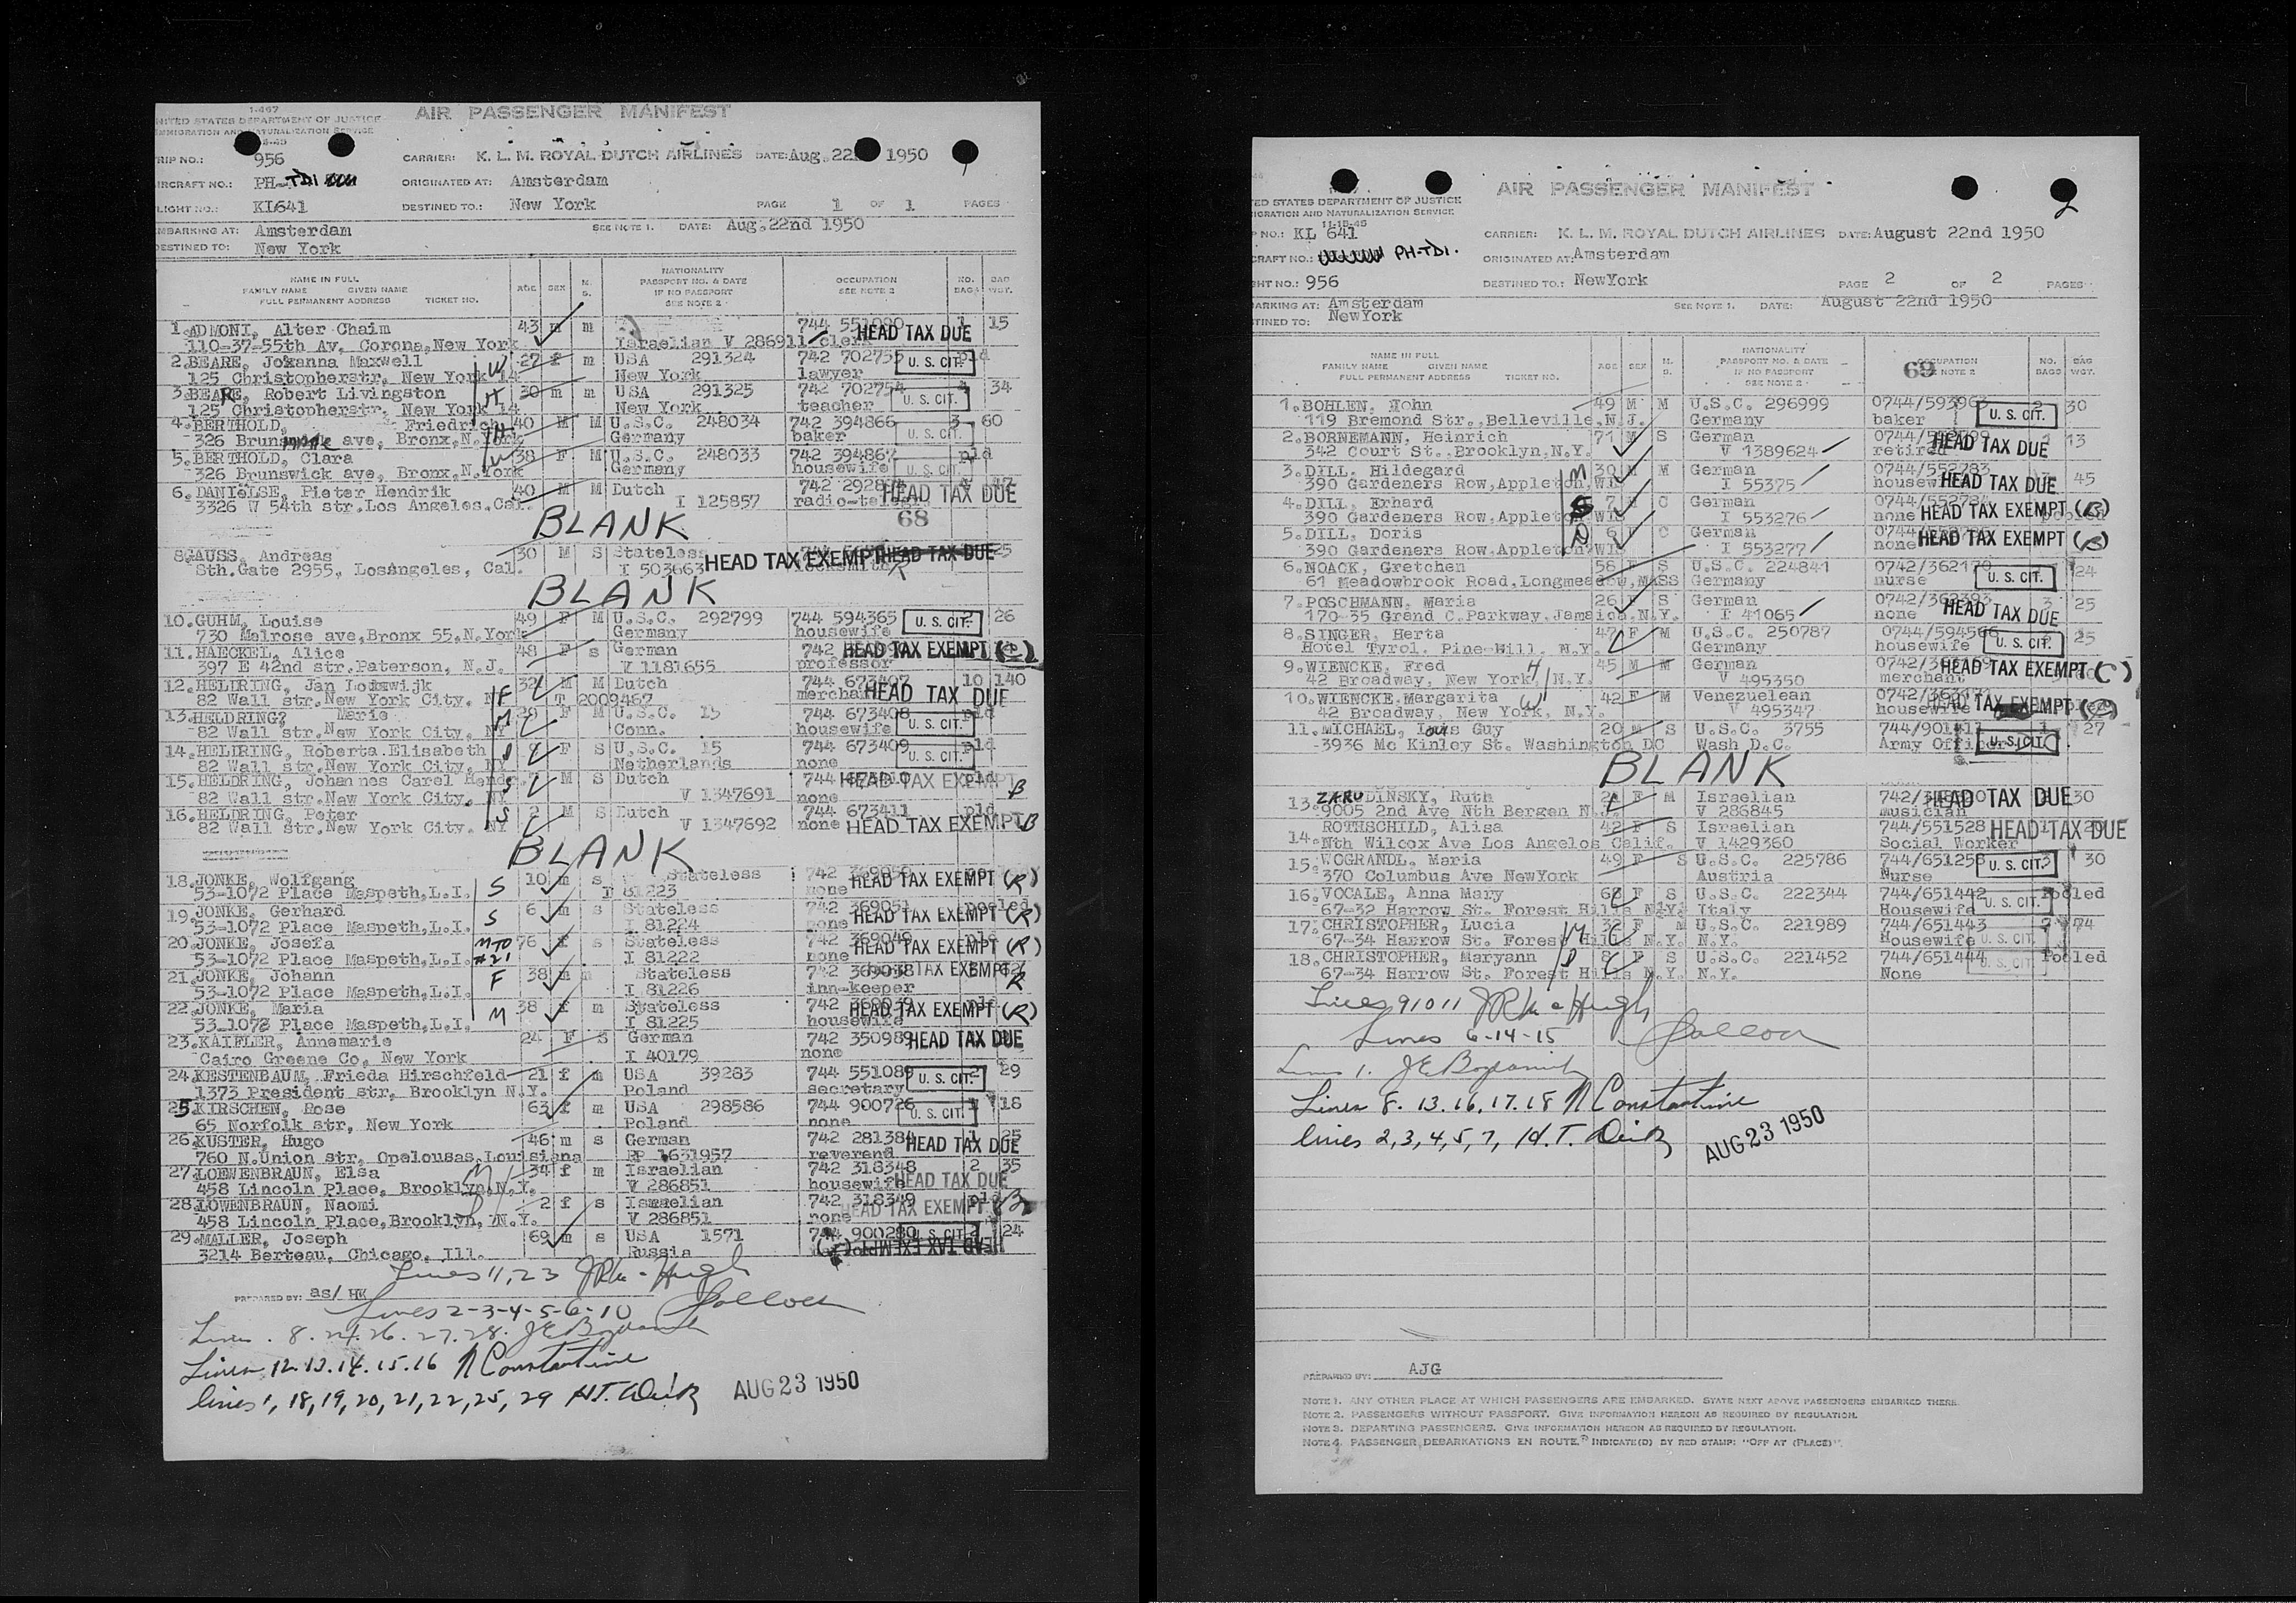 1-467
AIR PASSENGER MANIFEST
NITED STATES DEPARTMENT OF JUSTICE
IMMIGRATION AND NATURALIZATION SERVICE
RIP NO.: 956 CARRIER: K. L. M. ROYAL DUTCH AIRLINES DATE: Aug. 22 1950
IRCRAFT NO.: PH-TDI ORIGINATED AT: Amsterdam
LIGHT NO.: KL641 DESTINED TO.: New York PAGE 1 OF 1 PAGES
MBARKING AT: Amsterdam SEE NOTE 1. DATE: Aug. 22nd 1950
DESTINED TO: New York
NAME IN FULL
FAMILY NAME GIVEN NAME
FULL PERMANENT ADDRESS TICKET NO.
AGE SEX M. S. NATIONALITY PASSPORT NO. & DATE IF NO PASSPORT SEE NOTE 2 OCCUPATION SEE NOTE 2 NO. BAGS BAG WGT.
1. ADMONI, Alter Chaim 43 m m 744 551090 1 15
110-37-55th Av. Corona, New York Israelian V 286911 clerk HEAD TAX DUE
2. BEARE, Johanna Maxwell W 27 f m USA 291324 742 702755 pld
125 Christopherstr. New York 14 New York lawyer U. S. CIT.
3. BEARE, Robert Livingston H 30 m m USA 291325 742 702754 4 34
125 Christopherstr. New York 14 New York teacher U. S. CIT.
4. BERTHOLD, Friedrich 40 M M U.S.C. 248034 742 394866 3 60
326 Brunswick ave, Bronx, N. York H Germany baker U. S. CIT.
5. BERTHOLD, Clara W 38 F M U.S.C. 248033 742 394867 pld
326 Brunswick ave, Bronx, N. York Germany housewife U. S. CIT.
6. DANIELSE, Pieter Hendrik 40 M M Dutch 742 47
3326 W 54th str. Los Angeles, Cal. I 125857 HEAD TAX DUE
BLANK 68
8. GAUSS, Andreas 30 M S Stateless 25
Sth. Gate 2955, LosAngeles, Cal. I 503663 HEAD TAX EXEMPT HEAD TAX DUE locksmith R
BLANK
10. GUHM, Louise 49 F M U.S.C. 292799 744 594365 2 26
730 Melrose ave, Bronx 55, N. York Germany housewife U. S. CIT.
11. HAECKEL, Alice 48 F s German 742 HEAD TAX EXEMPT
397 E 42nd str. Paterson, N.J. V 1181655 professor
12. HELDRING, Jan Lodewijk 32 M M Dutch 744 673407 10 140
82 Wall str. New York City. NY F T 2009467 merchant HEAD TAX DUE
13. HELDRING, Marie M F M U.S.C. 15 744 673408 pld
82 Wall str. New York City, NY Conn. housewife U. S. CIT.
14. HELDRING, Roberta Elisabeth D F S U.S.C. 15 744 673409 pld
82 Wall str. New York City, NY Netherlands none U. S. CIT.
15. HELDRING, Johannes Carel S M S Dutch 744 673410 pld HEAD TAX EXEMPT B
82 Wall str. New York City, NY V 1347691 none
16. HELDRING, Peter S 2 M S Dutch 744 673411 pld
82 Wall str. New York City. NY V 1347692 none HEAD TAX EXEMPT B
BLANK
18. JONKE, Wolfgang S 10 m s Stateless 742 369050
53-1072 Place Maspeth, L.I. I 81223 none HEAD TAX EXEMPT (R)
19. JONKE, Gerhard S 6 m s Stateless 742 369051 pooled
53-1072 Place Maspeth, L.I. I 81224 none HEAD TAX EXEMPT (R)
20. JONKE, Josefa M TO #21 76 f s Stateless 742 369040 pld
53-1072 Place Maspeth, L.I. I 81222 none HEAD TAX EXEMPT (R)
21. JONKE, Johann F 38 m m Stateless 742 369038 HEAD TAX EXEMPT
53-1072 Place Maspeth, L.I. I 81226 inn-keeper R
22. JONKE, Maria M 38 f m Stateless 742 369039 pld
53-1072 Place Maspeth, L.I. I 81225 housewife HEAD TAX EXEMPT (R)
23. KAIFLER, Annemarie 24 F S German 742 350989 HEAD TAX DUE
Cairo Greene Co, New York I 40179 none
24. KESTENBAUM, Frieda Hirschfeld 21 f m USA 39283 744 551089 2 29
1373 President str. Brooklyn N.Y. Poland secretary U. S. CIT.
25. KIRSCHEN, Rose 63 f m USA 298586 744 900726 1 18
65 Norfolk str, New York Poland none U. S. CIT.
26. KUSTER, Hugo 46 m s German 742 281384 1 25
760 N. Union str, Opelousas, Louisiana RP 1631957 reverend HEAD TAX DUE
27. LOEWENBRAUN, Elsa M 34 f m Israelian 742 318348 2 35
458 Lincoln Place, Brooklyn, N.Y. V 286851 housewife HEAD TAX DUE
28. LOWENBRAUN, Naomi D 2 f s Israelian 742 318349 pld
458 Lincoln Place, Brooklyn, N.Y. V 286851 none HEAD TAX EXEMPT B
29. MALLER, Joseph 69 m s USA 1571 744 900280 2 24
3214 Berteau, Chicago, Ill. Russia U. S. CIT. HEAD TAX EXEMPT
Lines 11, 23 JR McHugh
PREPARED BY: as/ HK
Lines 2-3-4-5-6-10
Lines 8. 24. 26. 27. 28.
Lines 12. 13. 14. 15. 16 N Constantine
lines 1, 18, 19, 20, 21, 22, 25, 29 H.T. AUG 23 1950
AIR PASSENGER MANIFEST
2
ED STATES DEPARTMENT OF JUSTICE
IGRATION AND NATURALIZATION SERVICE
11-15-45
NO.: KL 641 CARRIER: K. L. M. ROYAL DUTCH AIRLINES DATE: August 22nd 1950
RAFT NO.: PH-TDI. ORIGINATED AT: Amsterdam
HT NO.: 956 DESTINED TO.: NewYork PAGE 2 OF 2 PAGES
ARKING AT: Amsterdam SEE NOTE 1. DATE: August 22nd 1950
TINED TO: NewYork
NAME IN FULL
FAMILY NAME GIVEN NAME
FULL PERMANENT ADDRESS TICKET NO.
AGE SEX M. S. NATIONALITY PASSPORT NO. & DATE IF NO PASSPORT SEE NOTE 2 69 OCCUPATION SEE NOTE 2 NO. BAGS BAG WGT.
1. BOHLEN, John 49 M M U.S.C. 296999 0744/593963 2 30
119 Bremond Str., Belleville, N.J. Germany baker U. S. CIT.
2. BORNEMANN, Heinrich 71 M S German 0744/ 13
342 Court St. Brooklyn, N.Y. V 1389624 retired HEAD TAX DUE
3. DILL, Hildegard M 30 M German 0744/552783 45
390 Gardeners Row, Appleton, WI. I 55375 housewife HEAD TAX DUE
4. DILL, Erhard S 7 C German 0744/552784
390 Gardeners Row, Appleton WI. I 553276 none HEAD TAX EXEMPT (B) pooled
5. DILL, Doris D 6 F C German 0744/
390 Gardeners Row, Appleton, WI. I 553277 none HEAD TAX EXEMPT (B)
6. NOACK, Gretchen 56 F S U.S.C. 224841 0742/362170 24
61 Meadowbrook Road, Longmeadow, MASS Germany nurse U. S. CIT.
7. POSCHMANN, Maria 26 F S German 0742/362393 3 25
170-35 Grand C. Parkway, Jamaica, N.Y. I 41065 none HEAD TAX DUE
8. SINGER, Herta 47 F M U.S.C. 250787 0744/594566 25
Hotel Tyrol, Pine Hill, N.Y. Germany housewife U. S. CIT.
9. WIENCKE, Fred H 45 M M German 0742/
42 Broadway, New York, N.Y. V 495350 merchant HEAD TAX EXEMPT (C)
10. WIENCKE, Margarita W 42 F M Venezuelean 0742/363171
42 Broadway, New York, N.Y. V 495347 housewife HEAD TAX EXEMPT (C)
11. MICHAEL, Louis Guy 20 m S U.S.C. 3755 744/901411 1 27
3936 Mc Kinley St. Washington DC Wash D.C. Army Officer U. S. CIT.
BLANK
13. ZARUDINSKY, Ruth F M Israelian 742/ 30
9005 2nd Ave Nth Bergen N.J. V 286845 musician HEAD TAX DUE
ROTHSCHILD, Alisa 42 F S Israelian 744/551528
14. Nth Wilcox Ave Los Angelos Calif. V 1429360 Social Worker HEAD TAX DUE
15. WOGRANDL, Maria 49 F S U.S.C. 225786 744/651258 3 30
370 Columbus Ave NewYork Austria Nurse U. S. CIT.
16. VOCALE, Anna Mary 68 F S U.S.C. 222344 744/651442 pooled
67-32 Harrow St. Forest Hills N.Y. Italy Housewife U. S. CIT.
17. CHRISTOPHER, Lucia M 32 F M U.S.C. 221989 744/651443 2 74
67-34 Harrow St. Forest Hills N.Y. N.Y. Housewife U. S. CIT.
18. CHRISTOPHER, Maryann D 8 F S U.S.C. 221452 744/651444 Pooled
67-34 Harrow St. Forest Hills N.Y. N.Y. None U. S. CIT.
Lines 9 10 11 JR McHugh
Lines 6-14-15
Lines 1.
Lines 8. 13. 16. 17. 18 N Constantine
lines 2, 3, 4, 5, 7, H.T. AUG 23 1950
PREPARED BY: AJG
NOTE 1. ANY OTHER PLACE AT WHICH PASSENGERS ARE EMBARKED. STATE NEXT ABOVE PASSENGERS EMBARKED THERE.
NOTE 2. PASSENGERS WITHOUT PASSPORT. GIVE INFORMATION HEREON AS REQUIRED BY REGULATION.
NOTE 3. DEPARTING PASSENGERS. GIVE INFORMATION HEREON AS REQUIRED BY REGULATION.
NOTE 4. PASSENGER DEBARKATIONS EN ROUTE. INDICATE(D) BY RED STAMP: "OFF AT (PLACE)".